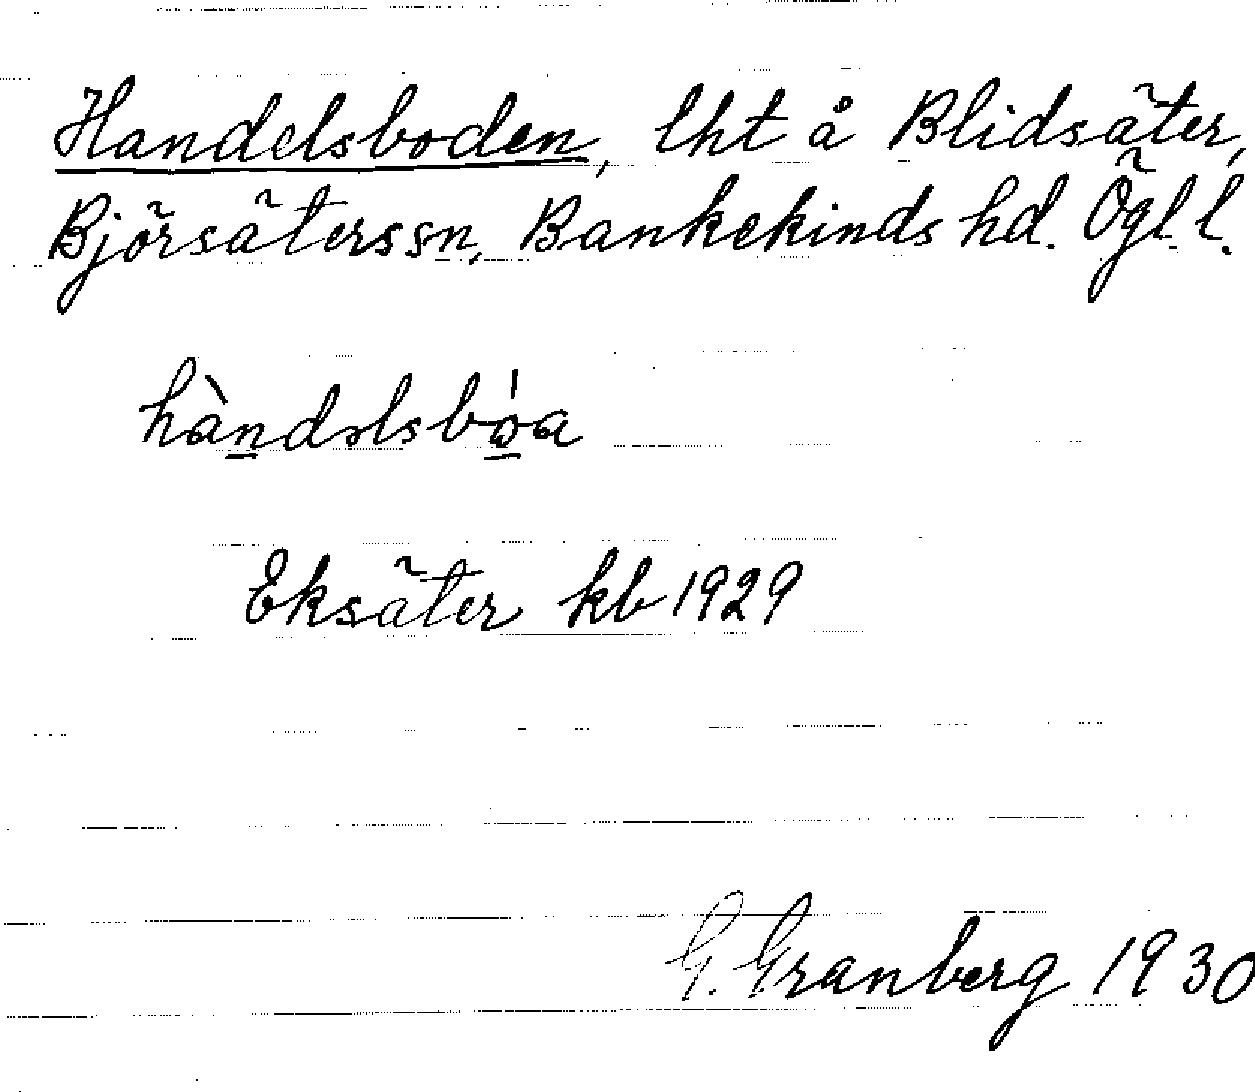 Handelsboden, lht å Blidsäter,
Björsäterssn, Bankekinds hd. Ögl l.
hàndəlsbóa
Eksäter kb 1929
G. Granberg 1930